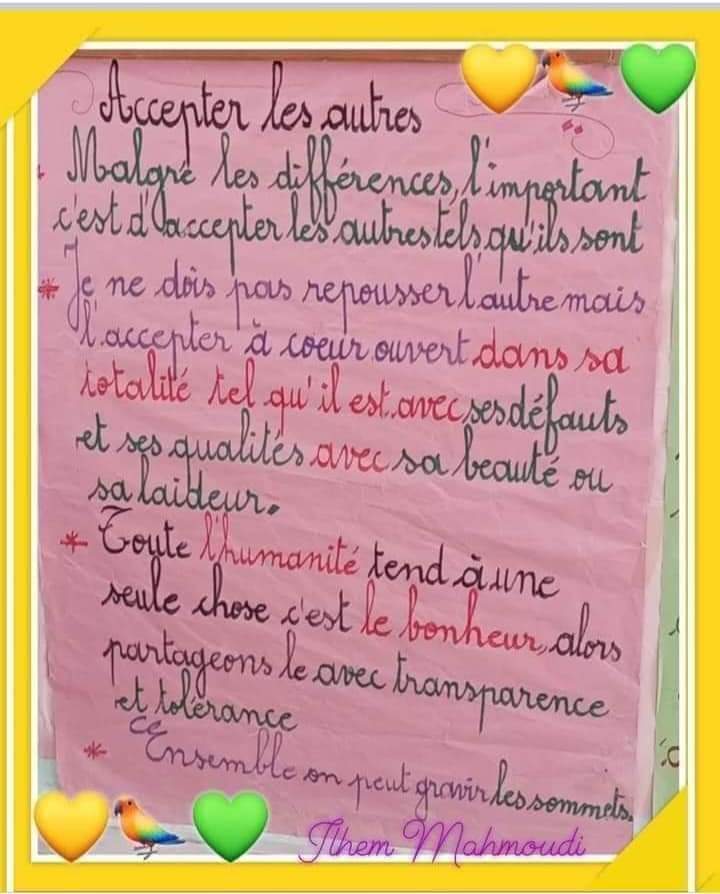 Accepter les autres
Malgré les différences, l'important
c'est d'accepter les autres tels qu'ils sont
* Je ne dois pas repousser l'autre mais
l'accepter à coeur ouvert dans sa
totalité tel qu'il est avec ses défauts
et ses qualités avec sa beauté ou
sa laideur.
* Toute l'humanité tend à une
seule chose c'est le bonheur, alors
partageons le avec transparence
et tolérance
* "Ensemble on peut gravir les sommets.
Ilhem Mahmoudi